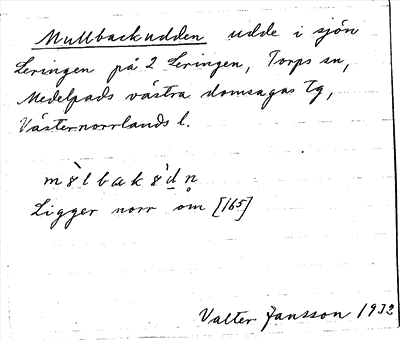 Mullbackudden udde i sjön
Leringen på 2 Leringen, Torps sn,
Medelpads västra domsagas tg,
Västernorrlands l.
m8̀lbak8̀d̲n̥
Ligger norr om [165]
Valter Jansson 1932